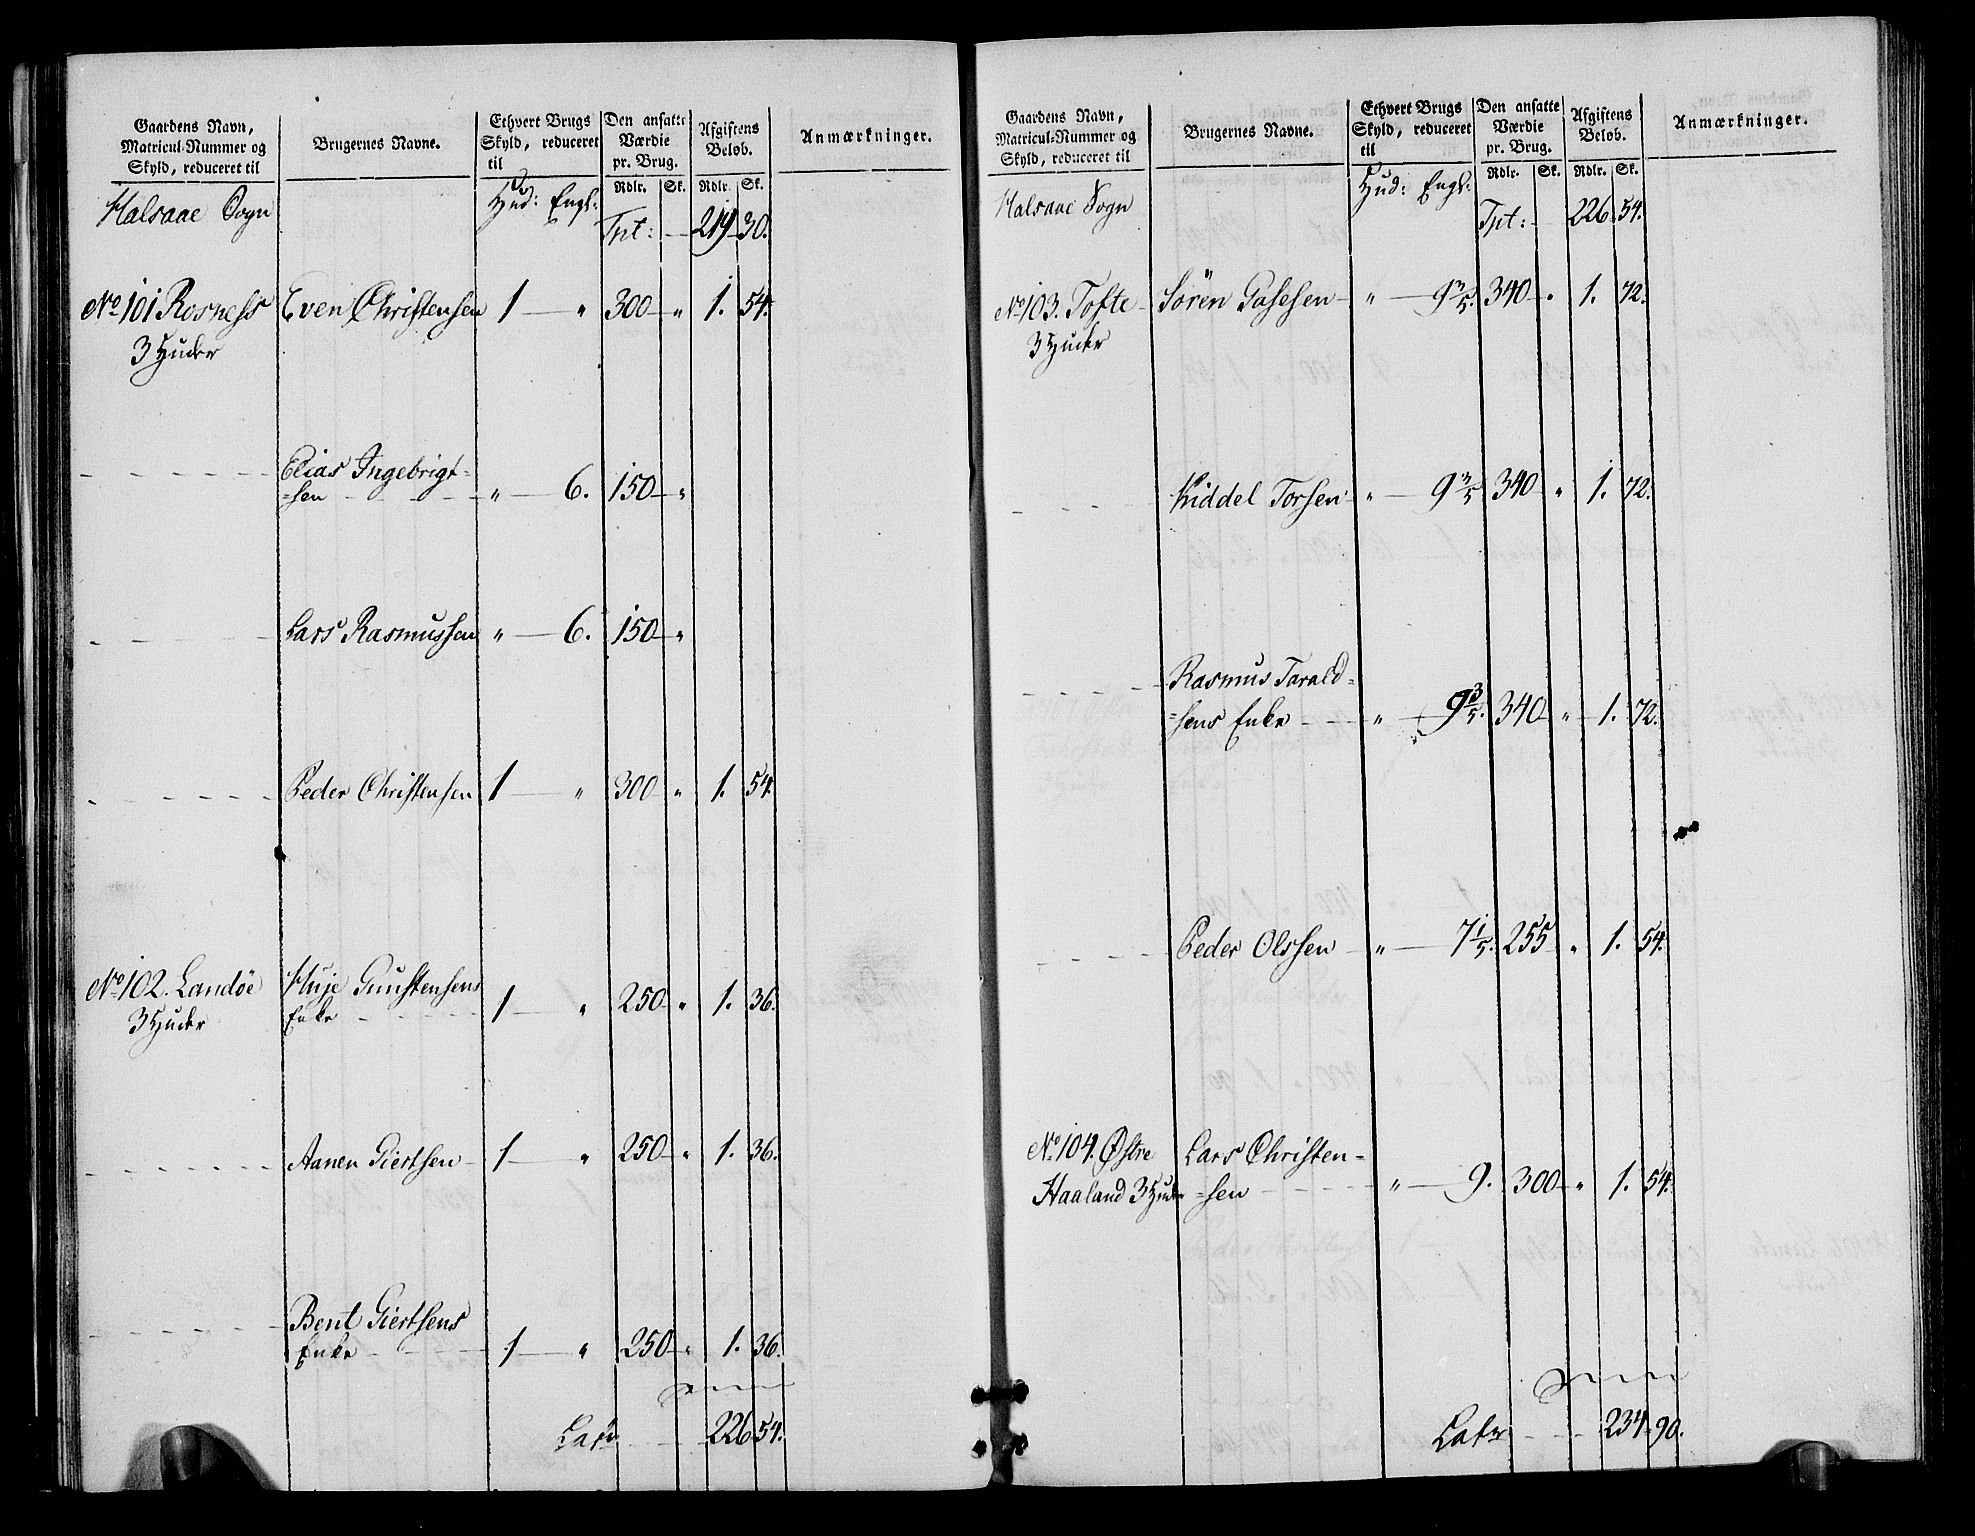 Gaardens Navn,
Matricul-Nummer og
Skyld, reduceret til
Brugernes Navne.
Ethvert Brugs
Skyld, reduceret
til
Den ansatte
Værdie
pr. Brug.
Afgiftens
Beløb.
Anmærkninger.
Rdlr. Sk. Rdlr. Sk.
Halsaae Sogn Hud: Engl:
Tpt: — 219 30.
No 101 Rosness Even Christensen 1 — " 300 — " 1. 54.
3 Huder
Elias Ingebrigt=
=sen " — 6. 150 — "
Lars Rasmussen " — 6. 150 — "
Peder Christensen 1 — " 300 " 1. 54.
No 102. Landøe
3 Huder
Enke 1 — " 250 " 1. 36.
Aanen Giertsen 1 — " 250 " 1. 36.
Bent Giertsens
Enke 1 — " 250 " 1. 36.
Later 226 54.
Gaardens Navn,
Matricul-Nummer og
Skyld, reduceret til
Brugernes Navne.
Ethvert Brugs
Skyld, reduceret
til
Den ansatte
Værdie
pr. Brug.
Afgiftens
Beløb.
Anmærkninger.
Rdlr. Sk. Rdlr. Sk.
Halsaae Sogn Hud: Engl:
Tpt: — 226 54.
No 103. Tofte Sören " — 9 3/5. 340 " 1. 72.
3 Huder
Kiddel Torsen " — 9 3/5 340 " 1. 72.
Rasmus Tarald=
=sens Enke " — 9 3/5. 340 " 1. 72.
Peder Olssen " — 7 1/5. 255 " 1. 54.
No 104. Østre Lars Christen=
Haaland 3 Huder =sen " — 9. 300 — " 1. 54.
Later 234 90.